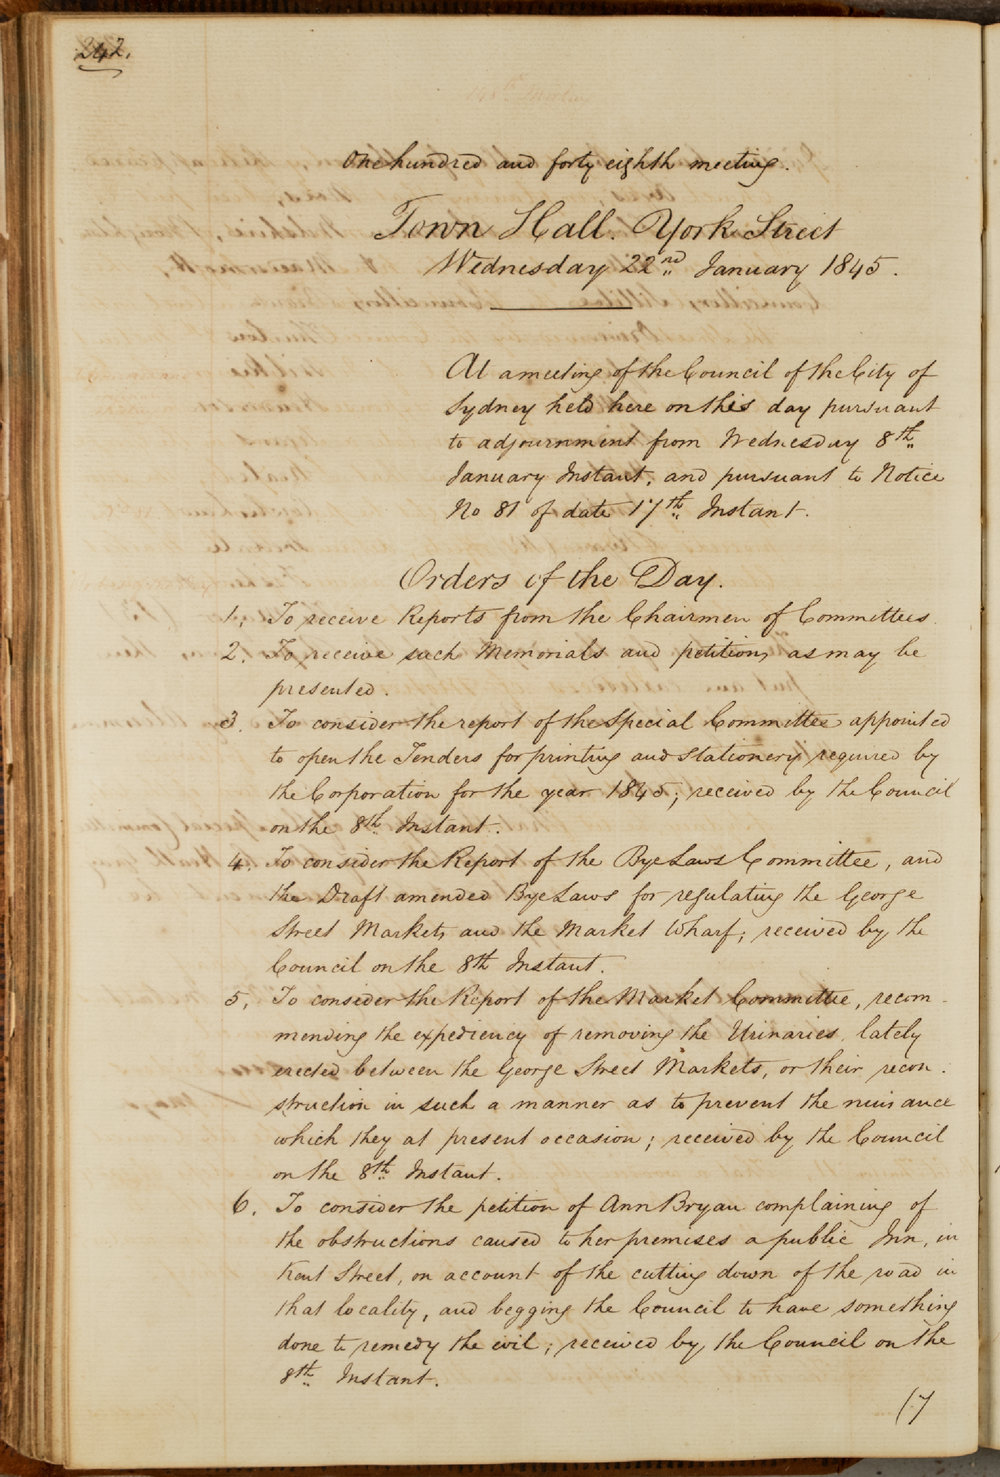 242.
One hundred and forty eighth meeting.
Town Hall. York Street
Wednesday 22nd January 1845.
At a meeting of the Council of the City of
Sydney held here on this day pursuant
to adjournment from Wednesday 8th
January Instant, and pursuant to Notice
No 81 of date 17th Instant.
Orders of the Day.
1. To receive Reports from the Chairmen of Committees.
2. To receive such Memorials and petitions as may be
presented.
3. To consider the report of the Special Committee appointed
to open the Tenders for printing and Stationery required by
the Corporation for the year 1845; received by the Council
on the 8th Instant.
4. To consider the Report of the Bye Laws Committee, and
the Draft amended Bye Laws for regulating the George
Street Markets and the Market Wharf; received by the
Council on the 8th Instant.
5. To consider the Report of the Market Committee, recom-
mending the expediency of removing the Urinaries lately
erected between the George Street Markets, or their recon-
struction in such a manner as to prevent the nuisance
which they at present occasion; received by the Council
on the 8th Instant.
6. To consider the petition of Ann Bryan complaining of
the obstructions caused to her premises a public Inn, in
Kent Street, on account of the cutting down of the road in
that locality, and begging the Council to have something
done to remedy the evil; received by the Council on the
8th Instant.
(7